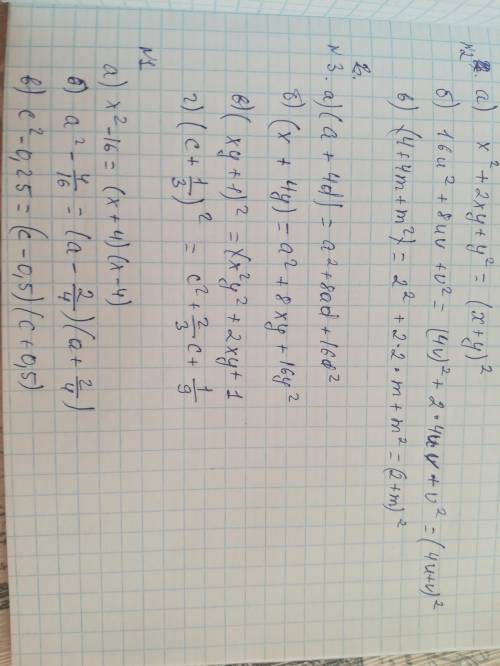 №2. а) x² + 2xy + y² = (x+y)²
б) 16u² + 8uv + v² = (4v)² + 2·4uv + v² = (4u+v)²
в) (4+4m+m²) = 2² + 2·2·m + m² = (2+m)²
№3. а) (a + 4d) = a² + 8ad + 16d²
б) (x + 4y) = a² + 8xy + 16y²
в) (xy+1)² = (x²y² + 2xy + 1
г) (c + 1/3)² = c² + 2/3 c + 1/9
№1
а) x² - 16 = (x+4)(x-4)
б) a² - 4/16 = (a - 2/4)(a + 2/4)
в) c² - 0,25 = (c - 0,5)(c + 0,5)